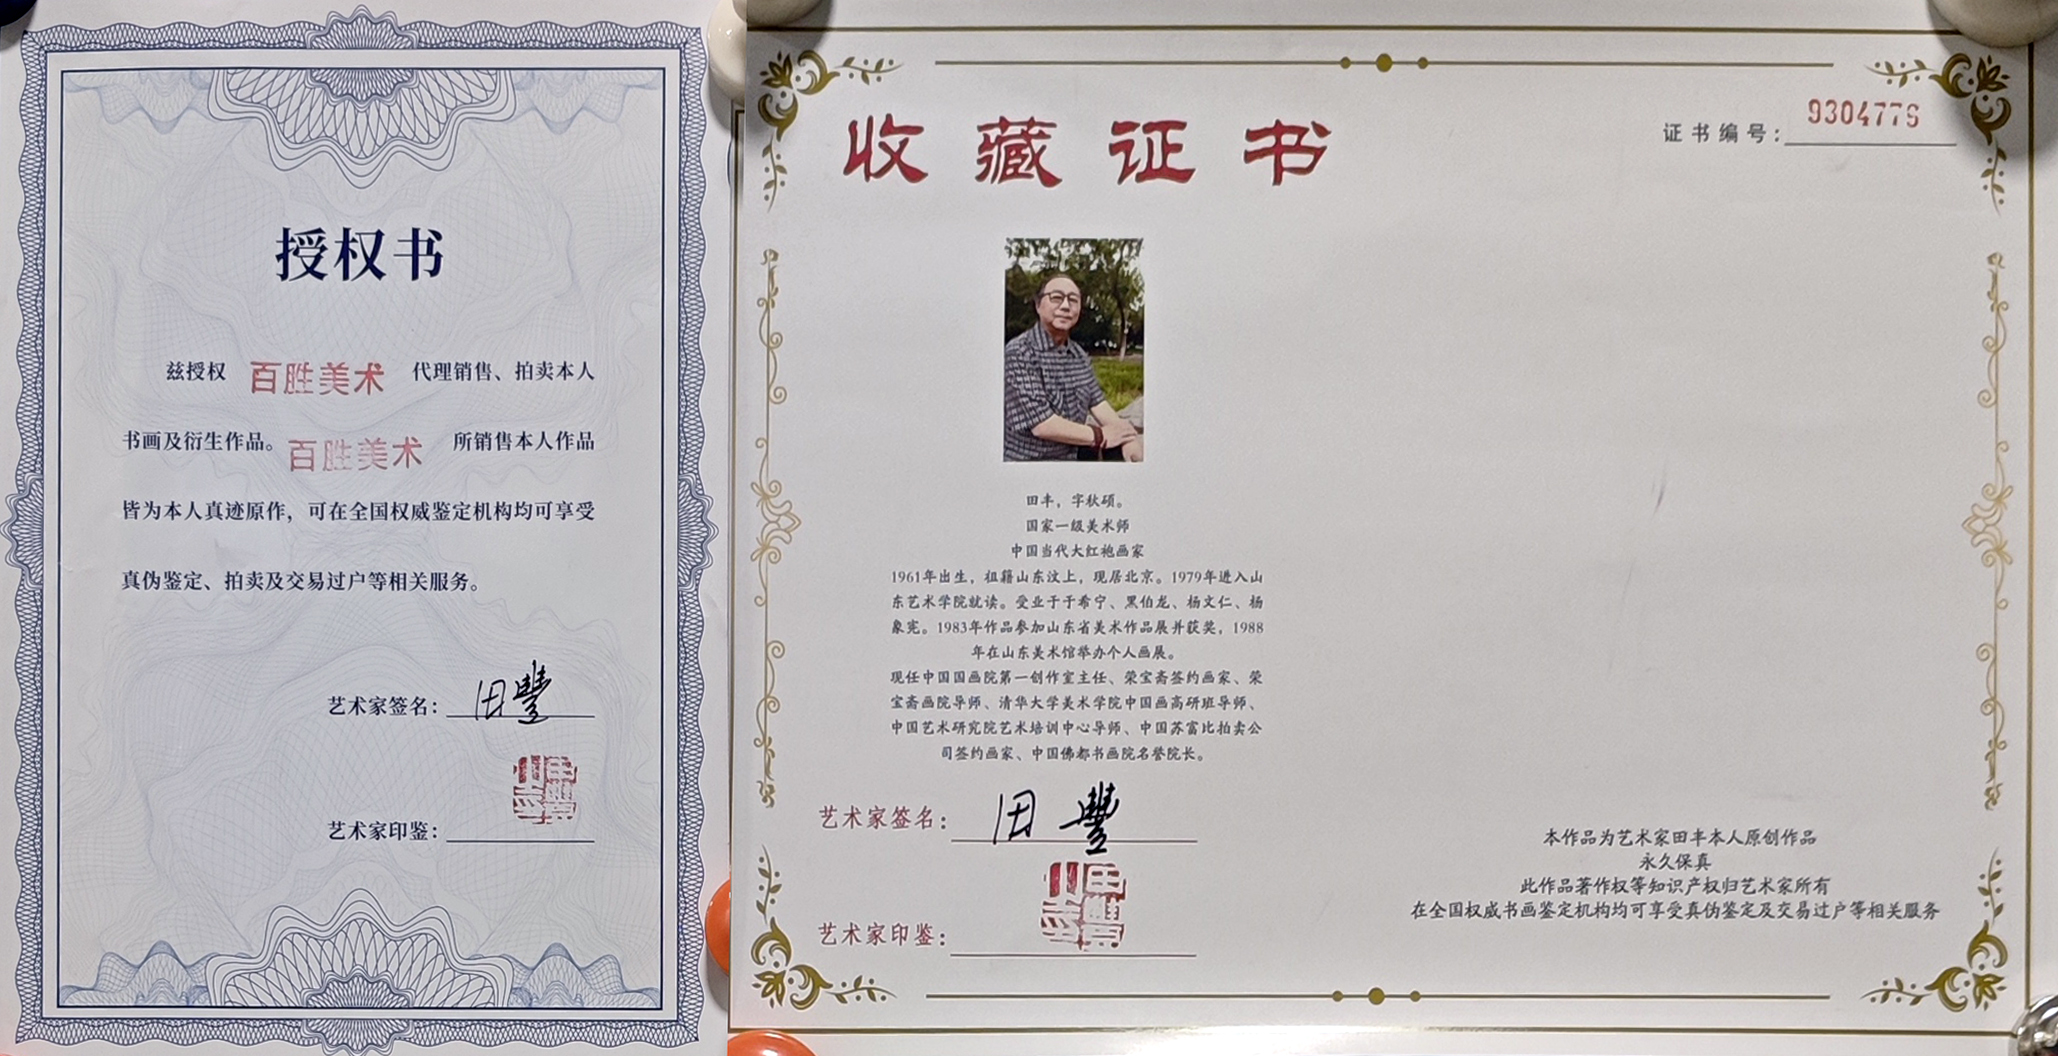 授权书
兹授权 百胜美术 代理销售、拍卖本人
书画及衍生作品。百胜美术 所销售本人作品
皆为本人真迹原作，可在全国权威鉴定机构均可享受
真伪鉴定、拍卖及交易过户等相关服务。
艺术家签名：田豐
艺术家印鉴：
收藏证书
证书编号：9304776
田丰，字秋硕。
国家一级美术师
中国当代大红袍画家
1961年出生，祖籍山东汶上，现居北京。1979年进入山
东艺术学院就读。受业于于希宁、黑伯龙、杨文仁、杨
象宪。1983年作品参加山东省美术作品展并获奖，1988
年在山东美术馆举办个人画展。
现任中国国画院第一创作室主任、荣宝斋签约画家、荣
宝斋画院导师、清华大学美术学院中国画高研班导师、
中国艺术研究院艺术培训中心导师、中国苏富比拍卖公
司签约画家、中国佛都书画院名誉院长。
艺术家签名：田豐
艺术家印鉴：
本作品为艺术家田丰本人原创作品
永久保真
此作品著作权等知识产权归艺术家所有
在全国权威书画鉴定机构均可享受真伪鉴定及交易过户等相关服务